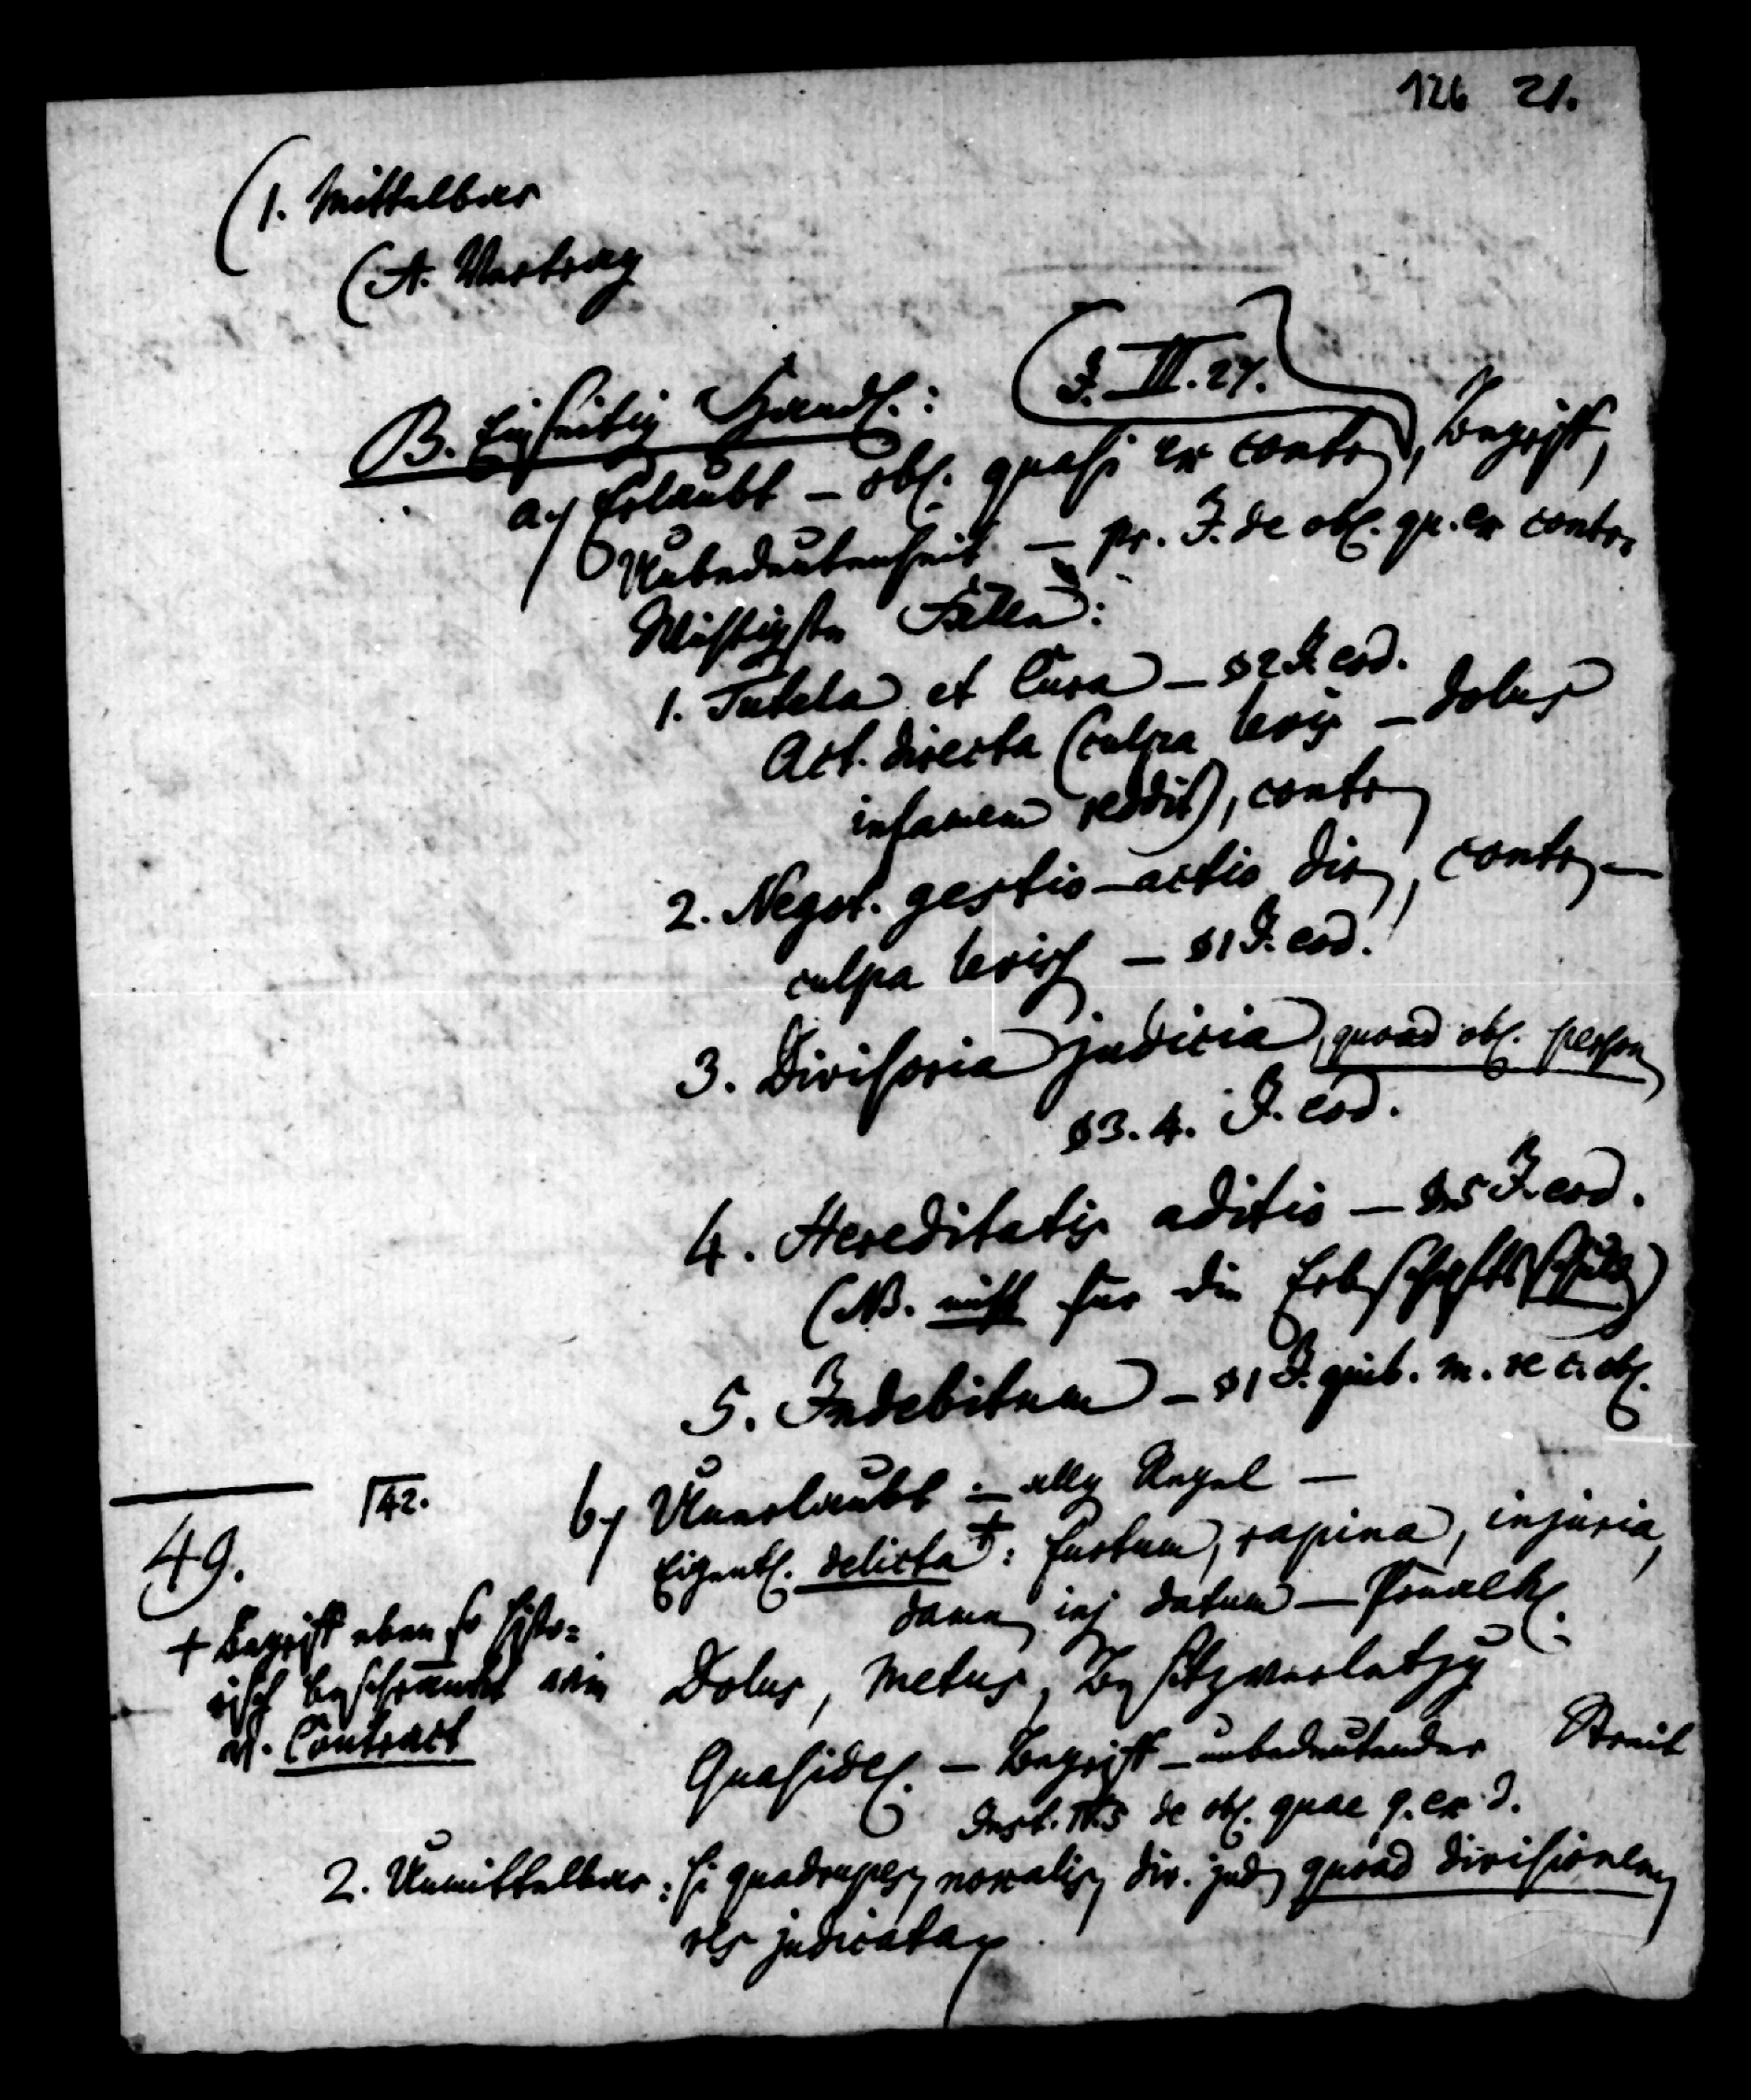 126 21.
(1. Mittelbar
(A. Vertrag
B. Einseitig Handl.:
(J. III. 27.
a) Erlaubt – obl. quasi ex contr., Begriff,
Unbedeutenheit – pr. J. de obl. qu. ex contr.
Wichtigste Fälle:
1. Tutela et Cura – § 2 J. eod.
Act. directa (culpa levis – dolus
infamem reddit), contr.
2. Negot. gestio – actio dir., contr. –
culpa levis – § 1 J. eod.
3. Divisoria judicia, quoad obl. person.
§ 3. 4. J. eod.
4. Hereditatis aditio – § 5 J. eod.
(NB. nicht für die Erbschaftsschuld)
5. Indebitum – § 1 J. quib. m. re c. obl.
42.
b) Unerlaubt – allg Regel –
49.
Eigentl. delicta +: furtum, rapina, injuria,
damn. inj datum – Poenalkl.
+ Begriff eben so histo=
risch beschränkt wie
d. Contract
Dolus, Metus, Besitzverletzg
Quasidel. – Begriff – unbedeutender Streit
Inst. IV. 5 de obl. quae q. ex d.
2. Unmittelbar: si quadrupes, noxalis, div. jud. quoad divisionem,
res judicata